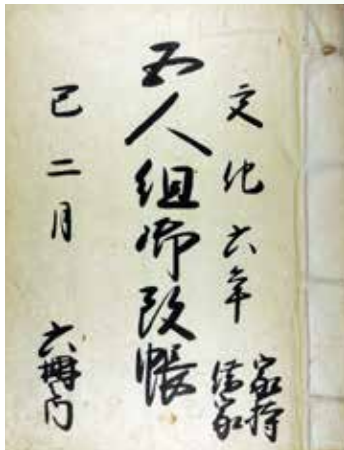 文化六年
家持
借家
五人組御改帳
巳二月
六冊内